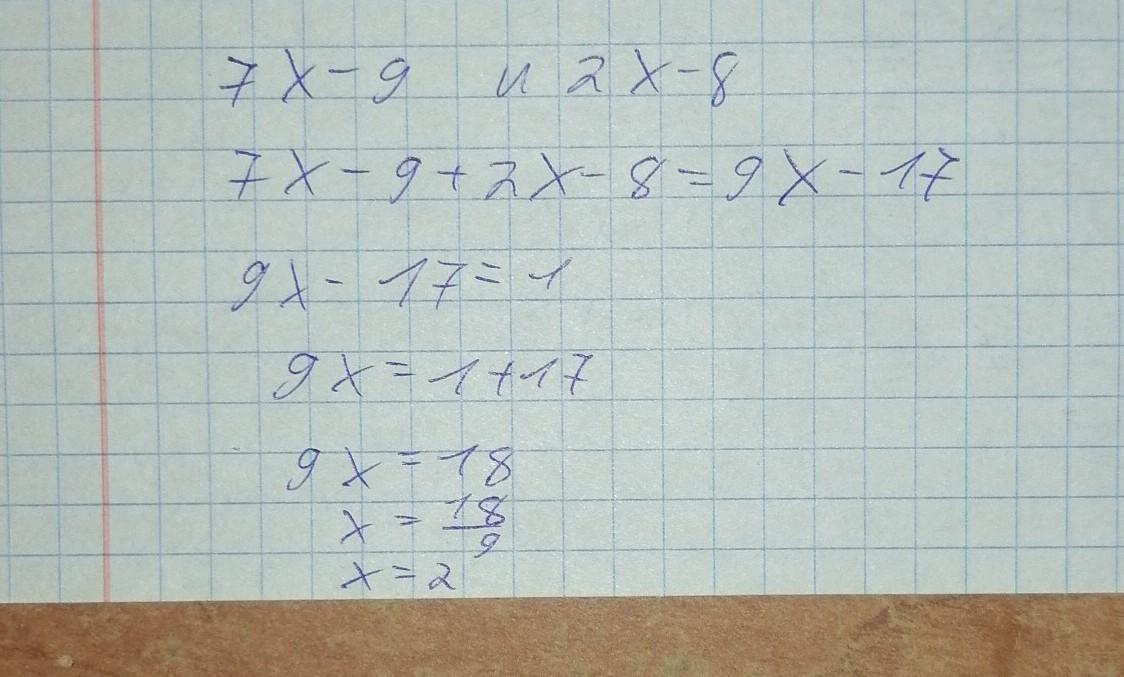 7x-9 и 2x-8
7x-9+2x-8=9x-17
9x-17=1
9x=1+17
9x=18
x=18/9
x=2